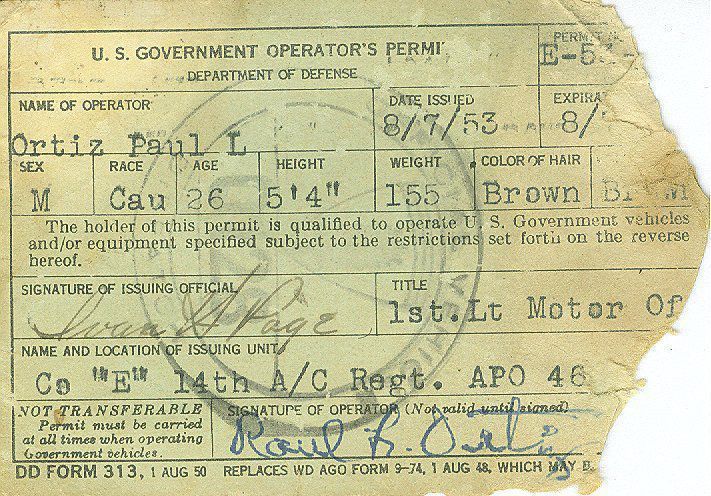 U. S. GOVERNMENT OPERATOR'S PERMIT
DEPARTMENT OF DEFENSE
PERMIT
E-53-
NAME OF OPERATOR
Ortiz Paul L
DATE ISSUED
8/7/53
EXPIRA
8/
SEX
M
RACE
Cau
AGE
26
HEIGHT
5'4"
WEIGHT
155
COLOR OF HAIR
Brown
The holder of this permit is qualified to operate U. S. Government vehicles
and/or equipment specified subject to the restrictions set forth on the reverse
hereof.
SIGNATURE OF ISSUING OFFICIAL
Ivan H Page
TITLE
1st. Lt Motor Of
NAME AND LOCATION OF ISSUING UNIT
Co "E" 14th A/C Regt. APO 46
NOT TRANSFERABLE
Permit must be carried
at all times when operating
Government vehicles.
SIGNATURE OF OPERATOR (Not valid until signed)
Paul L. Ortiz
DD FORM 313, 1 AUG 50 REPLACES WD AGO FORM 9-74, 1 AUG 48, WHICH MAY B